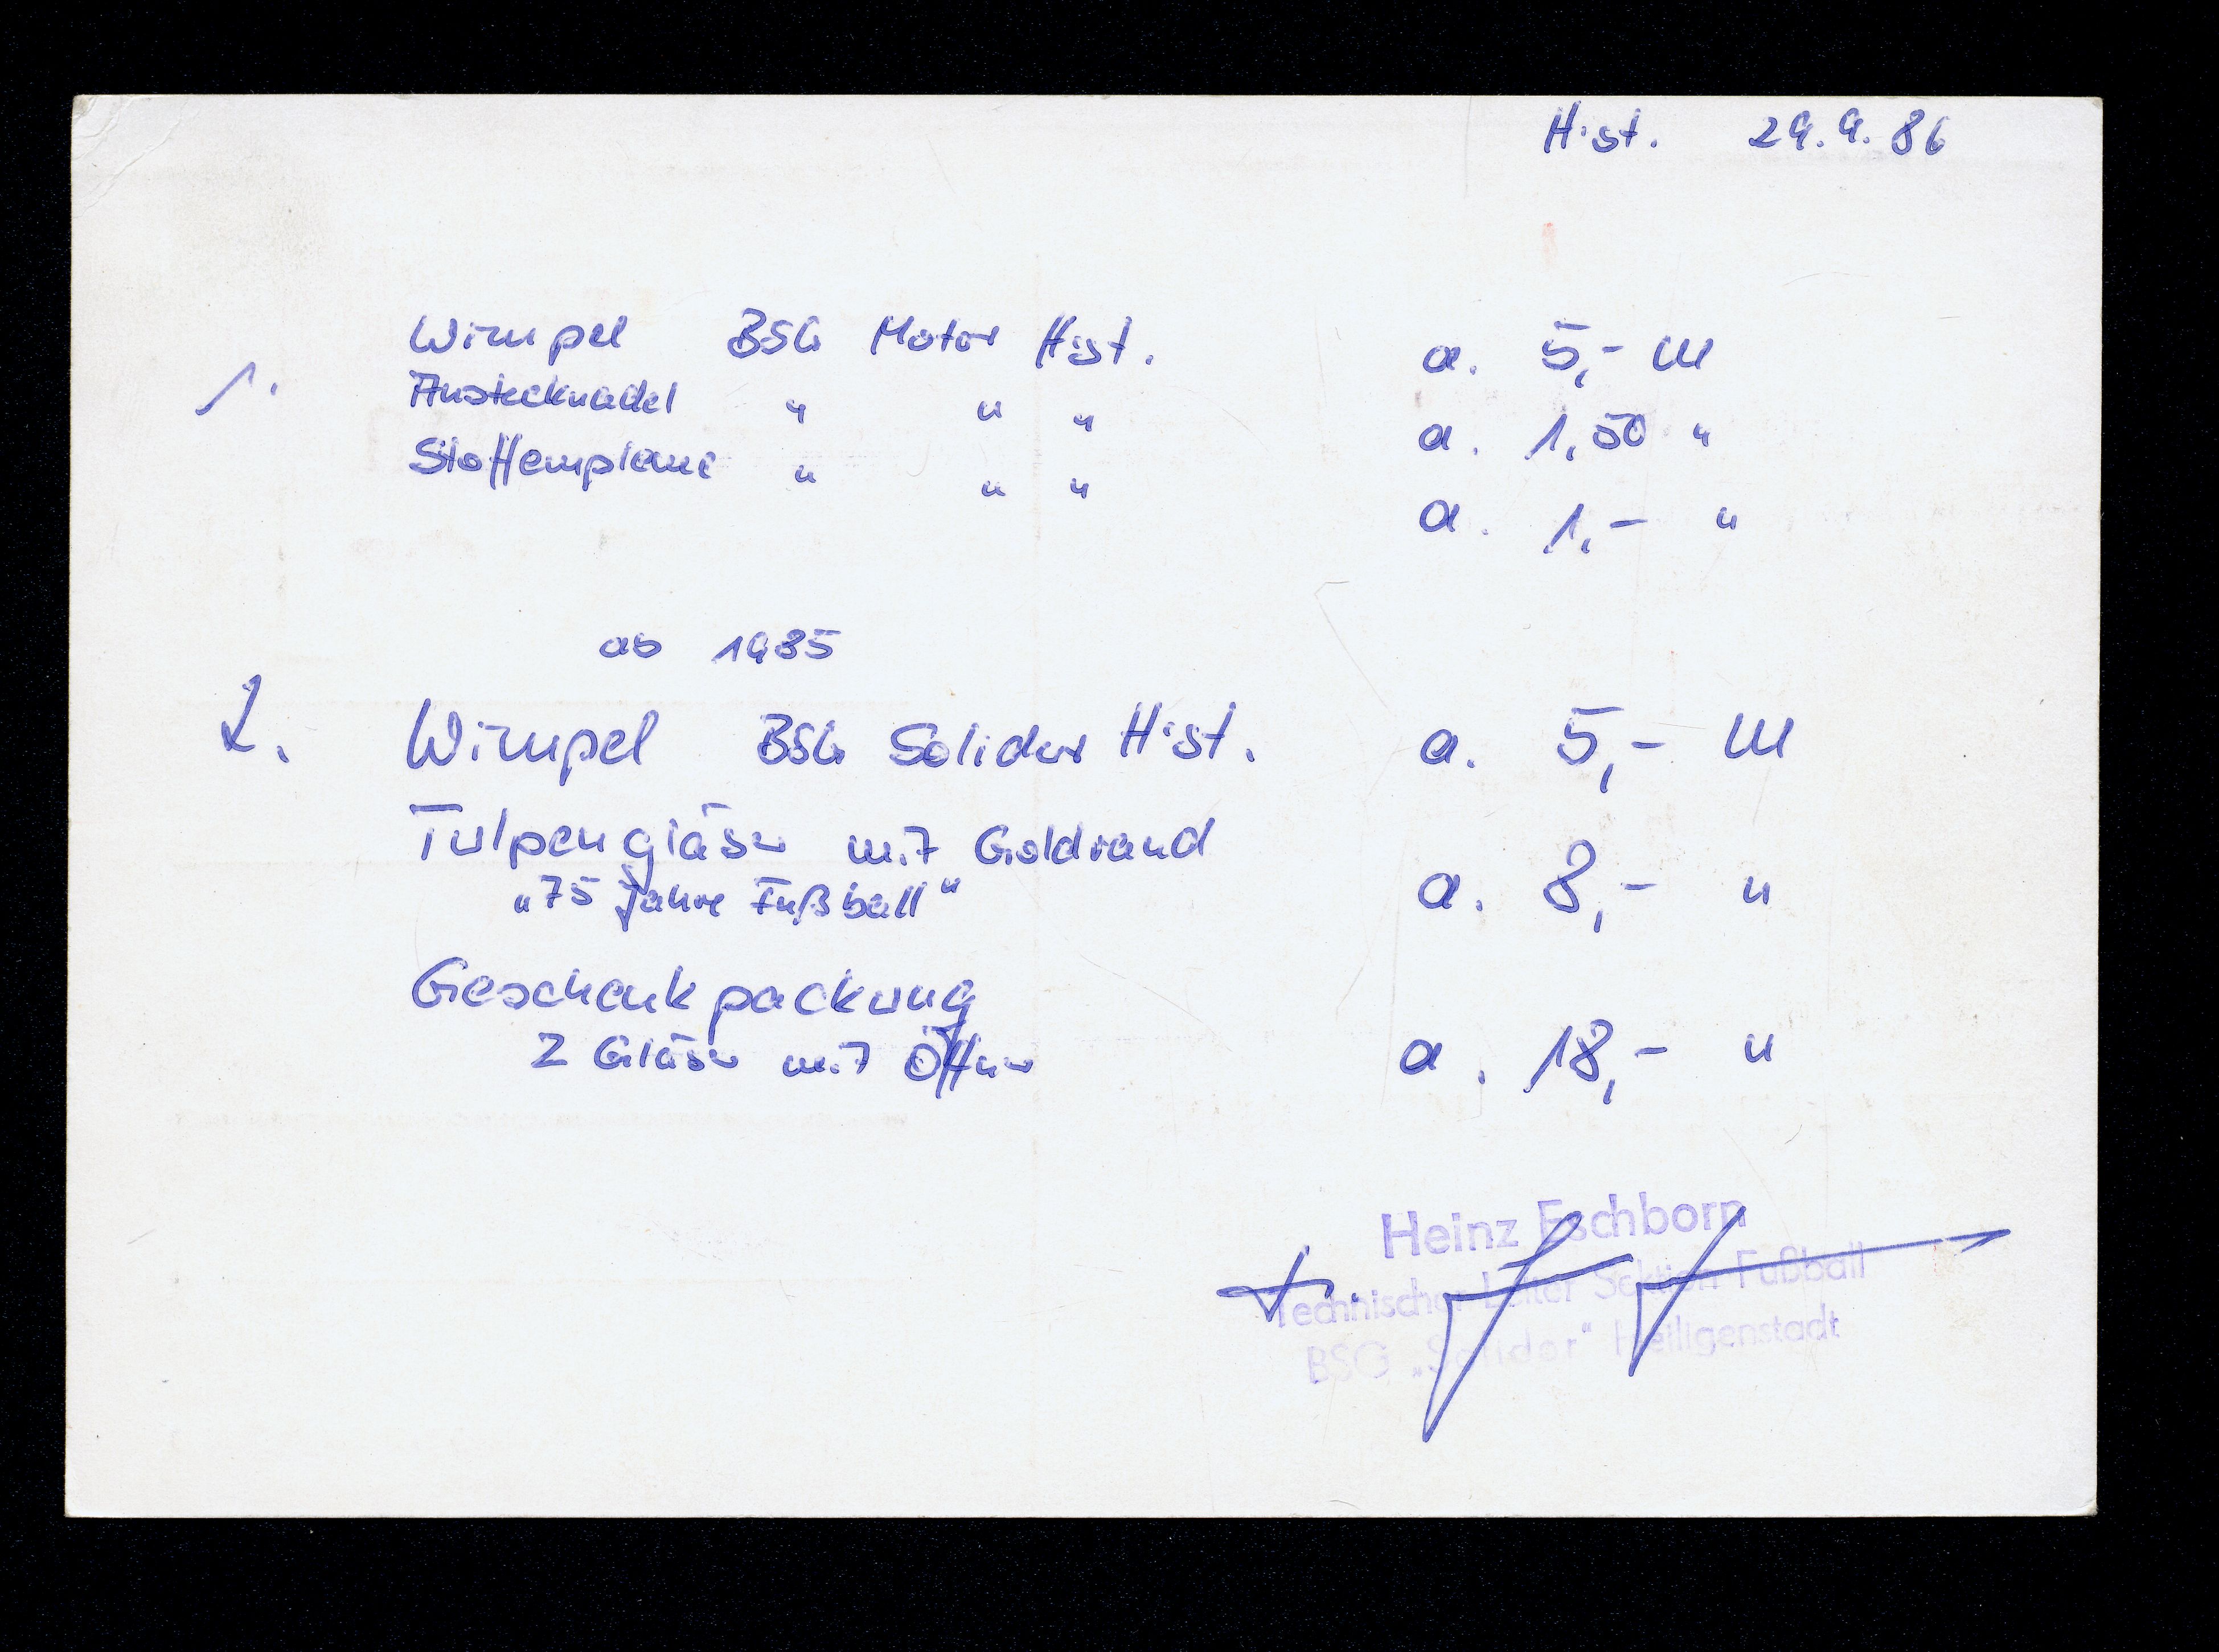 Hist. 29.9.86
1. Wimpel BSG Motor Hist. a. 5,- M
Anstecknadel " " " a. 1,50 "
Stoffempleme " " " a. 1,- "
ab 1985
2. Wimpel BSG Solidor Hist. a. 5,- M
Tulpengläser mit Goldrand
„75 Jahre Fußball" a. 8,- "
Geschenkpackung
2 Gläser mit Öffner a. 18,- "
Heinz Eschborn
Technischer Leiter Sektion Fußball
BSG „Solidor" Heiligenstadt